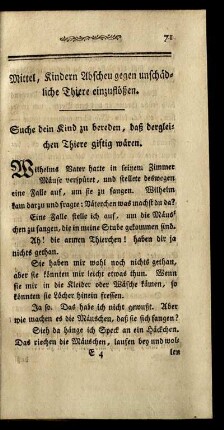 71
Mittel, Kindern Abscheu gegen unschäd-
liche Thiere einzuflößen.
Suche dein Kind zu bereden, daß derglei-
chen Thiere giftig wären.
Wilhelms Vater hatte in seinem Zimmer
Mäuse verspürt, und stellete deswegen
eine Falle auf, um sie zu fangen. Wilhelm
kam darzu und fragte: Väterchen was machst du da?
Eine Falle stelle ich auf, um die Mäus-
chen zu fangen, die in meine Stube gekommen sind.
Ah! die armen Thierchen! haben dir ja
nichts gethan.
Sie haben mir wohl noch nichts gethan,
aber sie könnten mir leicht etwas thun. Wenn
sie mir in die Kleider oder Wäsche kämen, so
könnten sie Löcher hinein fressen.
Ja so. Das habe ich nicht gewußt. Aber
wie machen es die Mäuschen, daß sie sich fangen?
Sieh da hänge ich Speck an ein Häckchen.
Das riechen die Mäuschen, laufen bey und wol-
E 4
len